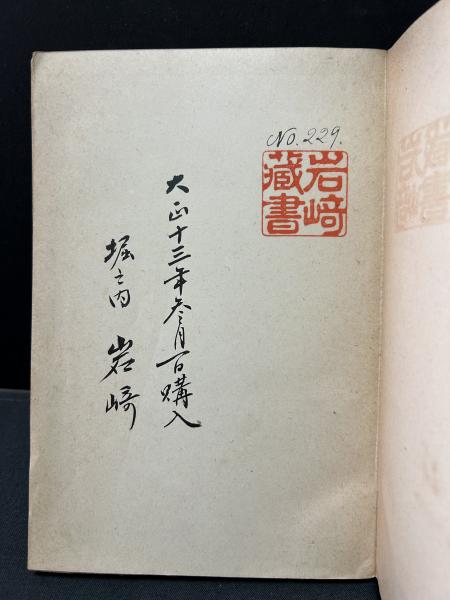 No. 229.
岩﨑
藏書
大正十三年参月一日購入
堀之内 岩﨑